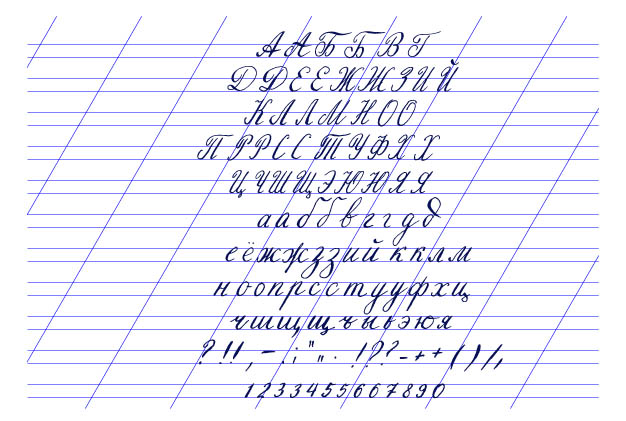 А А Б Б В Г
Д Д Е Е Ж Ж З И Й
К Л Л М Н О О
П Р Р С С Т У Ф Х Х
Ц Ч Ш Щ Э Ю Ю Я Я
а а б б в г г д д
е ё ж ж з з и й к к л м
н о о п р с с т у у ф х ц
ч ш щ щ ъ ы ь э ю я
? ! ! , – . ; " „ . ! ? ? - + + ( ) / ,
1 2 3 3 4 5 5 6 6 7 8 9 0